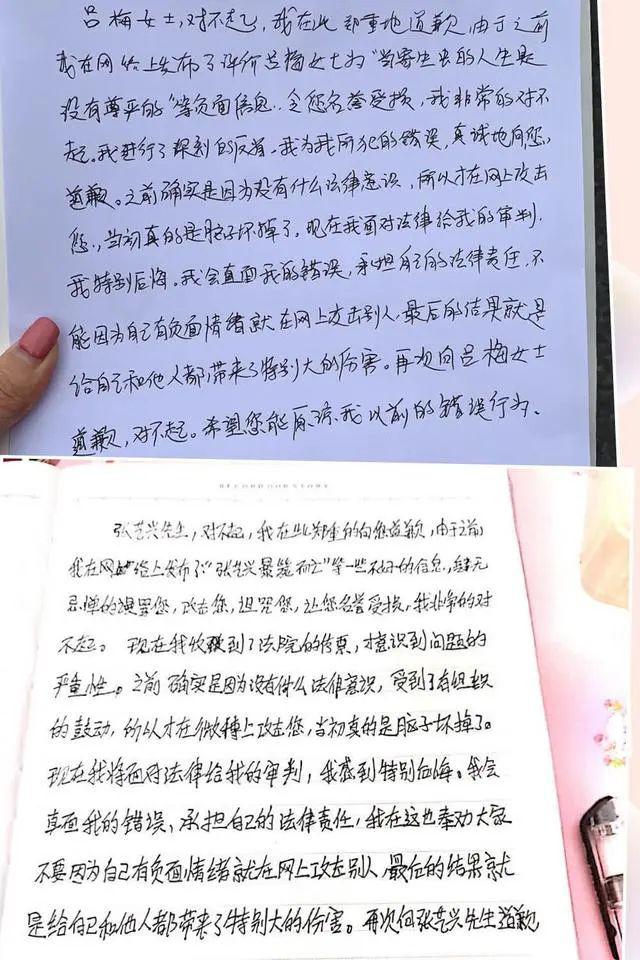 吕梅女士,对不起,我在此郑重地道歉,由于之前
我在网络上发布了评价吕梅女士为“当寄生虫的人生是
没有尊严的”等负面信息..令您名誉受损,我非常的对不
起.我进行了深刻的反省.我为我所犯的错误,真诚地向您,
道歉。之前确实是因为没有什么法律意识,所以才在网上攻击
您.,当初真的是脑子坏掉了,现在我面对法律给我的审判.
我特别后悔。我会直面我的错误,承担自己的法律责任.不
能因为自己有负面情绪就在网上攻击别人.最后的结果就是
给自己和他人都带来了特别大的伤害。再次向吕梅女士
道歉,对不起。希望您能原谅.我以前的错误行为.
RECORD OUR STORY
张艺兴先生,对不起,我在此郑重的向您道歉,由于之前
我在网络上发布了“张艺兴暴毙而亡”等一些不好的信息,肆无
忌惮的谩骂您,攻击您,诅咒您,让您名誉受损,我非常的对
不起。现在我收到了法院的传票,才意识到问题的
严重性。之前确实是因为没有什么法律意识,受到了有组织
的鼓动,所以才在微博上攻击您,当初真的是脑子坏掉了。
现在我将面对法律给我的审判,我感到特别后悔。我会
直面我的错误、承担自己的法律责任,我在这也奉劝大家
不要因为自己有负面情绪就在网上攻击别人,最后的结果就
是给自己和他人都带来了特别大的伤害。再次向张艺兴先生道歉